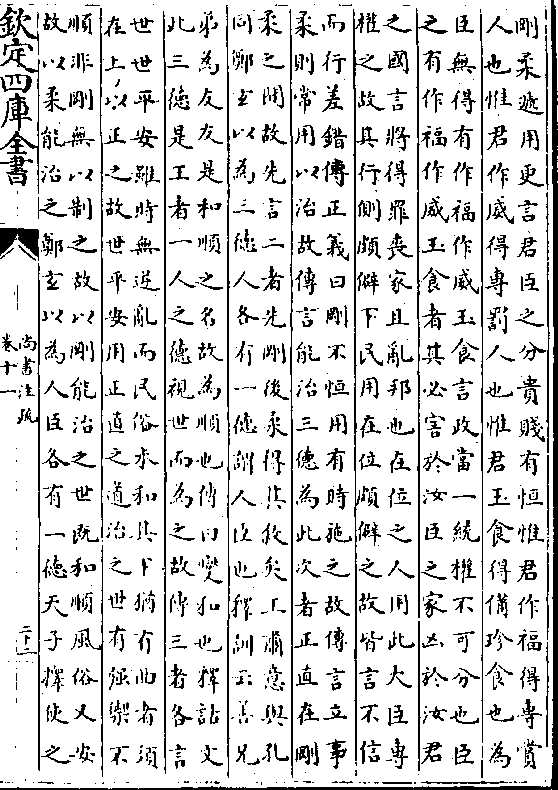 剛柔遞用更言君臣之分貴賤有恒惟君作福得專賞
人也惟君作威得專罰人也惟君玉食得備珍食也為
臣無得有作福作威玉食言政當一統權不可分也臣
之有作福作威玉食者其必害於汝臣之家凶於汝君
之國言將得罪喪家且亂邦也在位之人用此大臣專
權之故其行側頗僻下民用在位頗僻之故皆言不信
而行差錯傳正義曰剛不恒用有時施之故傳言立事
柔則常用以治故傳言能治三德為此次者正直在剛
柔之間故先言二者先剛後柔得其敘矣王肅意與孔
同鄭玄以為三德人各有一德謂人臣也釋訓云善兄
弟為友友是和順之名故為順也傳曰燮和也釋詁文
此三德是王者一人之德視世而為之故傳三者各言
世世平安雖時無逆亂而民俗未和其下猶有曲者須
在上以正之故世平安用正直之道治之世有强禦不
順非剛無以制之故以剛能治之世既和順風俗又安
故以柔能治之鄭玄以為人臣各有一德天子擇使之
欽定四庫全書
尚書注疏
卷十一
二十二